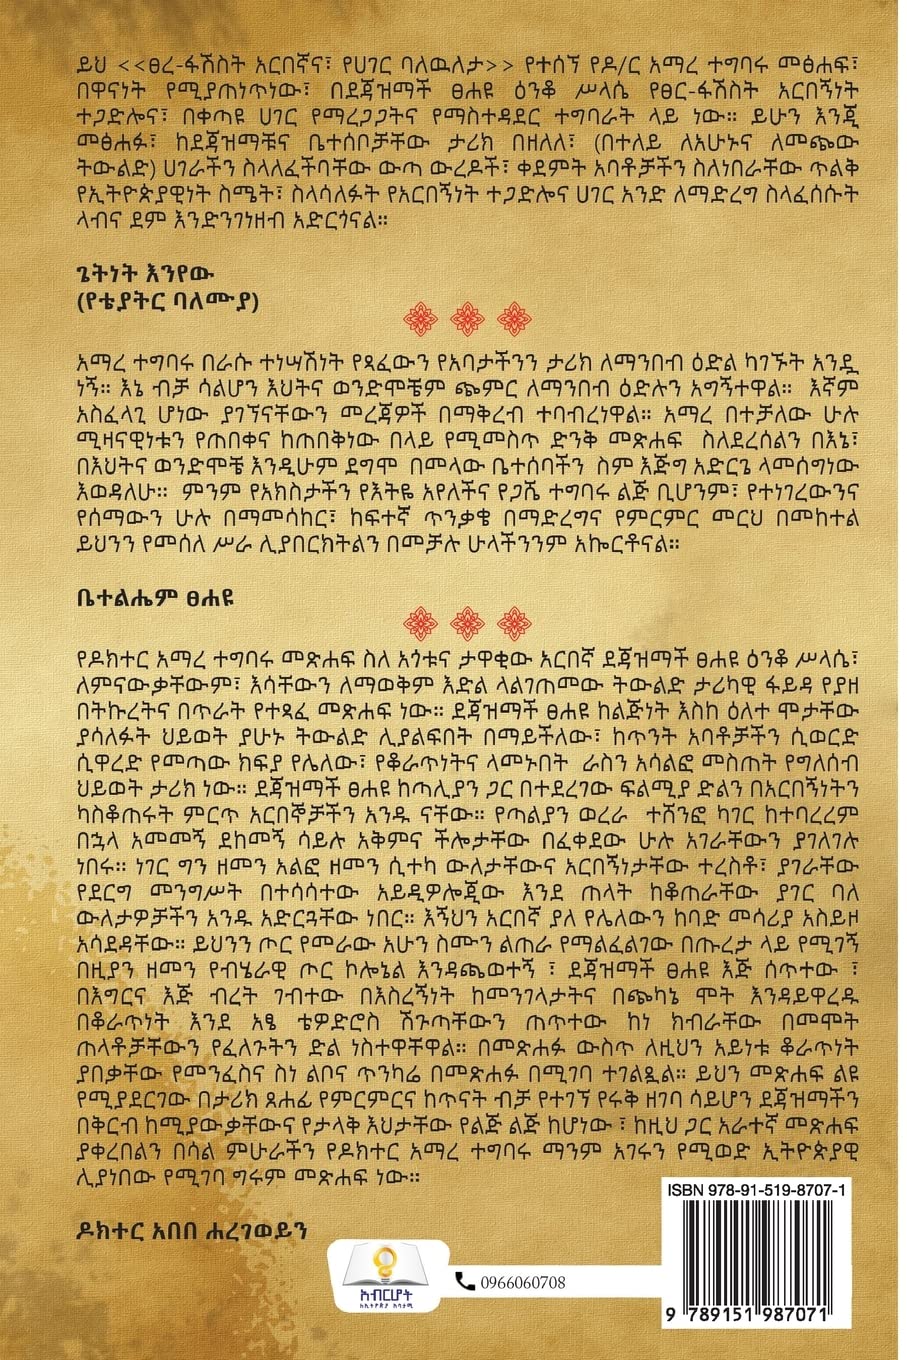 ይህ <<ፀረ-ፋሽስት አርበኛና፣ የሀገር ባለዉለታ>> የተሰኘ የዶ/ር አማረ ተግባሩ መፅሐፍ፣
በዋናነት የሚያጠነጥነው፣ በደጃዝማች ፀሐዩ ዕንቆ ሥላሴ የፀር-ፋሽስት አርበኝነት
ተጋድሎና፣ በቀጣዩ ሀገር የማረጋጋትና የማስተዳደር ተግባራት ላይ ነው። ይሁን እንጂ
መፅሐፉ፣ ከደጃዝማቹና ቤተሰቦቻቸው ታሪክ በዘለለ፣ (በተለይ ለአሁኑና ለመጪው
ትውልድ) ሀገራችን ስላለፈችባቸው ውጣ ውረዶች፣ ቀደምት አባቶቻችን ስለነበራቸው ጥልቅ
የኢትዮጵያዊነት ስሜት፣ ስላሳለፉት የአርበኝነት ተጋድሎና ሀገር አንድ ለማድረግ ስላፈሰሱት
ላብና ደም እንድንገነዘብ አድርጎናል።
ጌትነት እንየው
(የቴያትር ባለሙያ)
አማረ ተግባሩ በራሱ ተነሣሽነት የጻፈውን የአባታችንን ታሪክ ለማንበብ ዕድል ካገኙት አንዷ
ነኝ። እኔ ብቻ ሳልሆን እህትና ወንድሞቼም ጭምር ለማንበብ ዕድሉን አግኝተዋል። እኛም
አስፈላጊ ሆነው ያገኘናቸውን መረጃዎች በማቅረብ ተባብረነዋል። አማረ በተቻለው ሁሉ
ሚዛናዊነቱን የጠበቀና ከጠበቅነው በላይ የሚመስጥ ድንቅ መጽሐፍ ስለደረሰልን በእኔ፣
በእህትና ወንድሞቼ እንዲሁም ደግሞ በመላው ቤተሰባችን ስም እጅግ አድርጌ ላመሰግነው
እወዳለሁ። ምንም የአክስታችን የእትዬ አየለችና የጋሼ ተግባሩ ልጅ ቢሆንም፣ የተነገረውንና
የሰማውን ሁሉ በማመሳከር፣ ከፍተኛ ጥንቃቄ በማድረግና የምርምር መርህ በመከተል
ይህንን የመሰለ ሥራ ሊያበርክትልን በመቻሉ ሁላችንንም አኰርቶናል።
ቤተልሔም ፀሐዩ
የዶክተር አማረ ተግባሩ መጽሐፍ ስለ አጎቱና ታዋቂው አርበኛ ደጃዝማች ፀሐዩ ዕንቆ ሥላሴ፣
ለምናውቃቸውም፣ እሳቸውን ለማወቅም እድል ላልገጠመው ትውልድ ታሪካዊ ፋይዳ የያዘ
በትኩረትና በጥራት የተጻፈ መጽሐፍ ነው። ደጃዝማች ፀሐዩ ከልጅነት እስከ ዕለተ ሞታቸው
ያሳለፉት ህይወት ያሁኑ ትውልድ ሊያልፍበት በማይችለው፣ ከጥንት አባቶቻችን ሲወርድ
ሲዋረድ የመጣው ክፍያ የሌለው፣ የቆራጥነትና ላመኑበት ራስን አሳልፎ መስጠት የግለሰብ
ህይወት ታሪክ ነው። ደጃዝማች ፀሐዩ ከጣሊያን ጋር በተደረገው ፍልሚያ ድልን በአርበኝነትን
ካስቆጠሩት ምርጥ አርበኞቻችን አንዱ ናቸው። የጣልያን ወረራ ተሸንፎ ካገር ከተባረረም
በኋላ አመመኝ ደከመኝ ሳይሉ አቅምና ችሎታቸው በፈቀደው ሁሉ አገራቸውን ያገለገሉ
ነበሩ። ነገር ግን ዘመን አልፎ ዘመን ሲተካ ውለታቸውና አርበኝነታቸው ተረስቶ፣ ያገራቸው
የደርግ መንግሥት በተሳሳተው አይዲዎሎጂው እንደ ጠላት ከቆጠራቸው ያገር ባለ
ውለታዎቻችን አንዱ አድርጓቸው ነበር። እኝህን አርበኛ ያለ የሌለውን ከባድ መሳሪያ አስይዞ
አሳደዳቸው። ይህንን ጦር የመራው አሁን ስሙን ልጠራ የማልፈልገው በጡረታ ላይ የሚገኝ
በዚያን ዘመን የብሄራዊ ጦር ኮሎኔል እንዳጫወተኝ ፣ ደጃዝማች ፀሐዩ እጅ ሰጥተው ፣
በእግርና እጅ ብረት ገብተው በእስረኝነት ከመንገላታትና በጭካኔ ሞት እንዳይዋረዱ
በቆራጥነት እንደ አፄ ቴዎድሮስ ሽጉጣቸውን ጠጥተው ከነ ክብራቸው በመሞት
ጠላቶቻቸውን የፈለጉትን ድል ነስተዋቸዋል። በመጽሐፉ ውስጥ ለዚህን አይነቱ ቆራጥነት
ያበቃቸው የመንፈስና ስነ ልቦና ጥንካሬ በመጽሐፉ በሚገባ ተገልጿል። ይህን መጽሐፍ ልዩ
የሚያደርገው በታሪክ ጸሐፊ የምርምርና ከጥናት ብቻ የተገኘ የሩቅ ዘገባ ሳይሆን ደጃዝማችን
በቅርብ ከሚያውቃቸውና የታላቅ እህታቸው የልጅ ልጅ ከሆነው ፣ ከዚህ ጋር አራተኛ መጽሐፍ
ያቀረበልን በሳል ምሁራችን የዶክተር አማረ ተግባሩ ማንም አገሩን የሚወድ ኢትዮጵያዊ
ሊያነበው የሚገባ ግሩም መጽሐፍ ነው።
ዶክተር አበበ ሐረገወይን
ISBN 978-91-519-8707-1
9 789151 987071
አብርሆት
0966060708